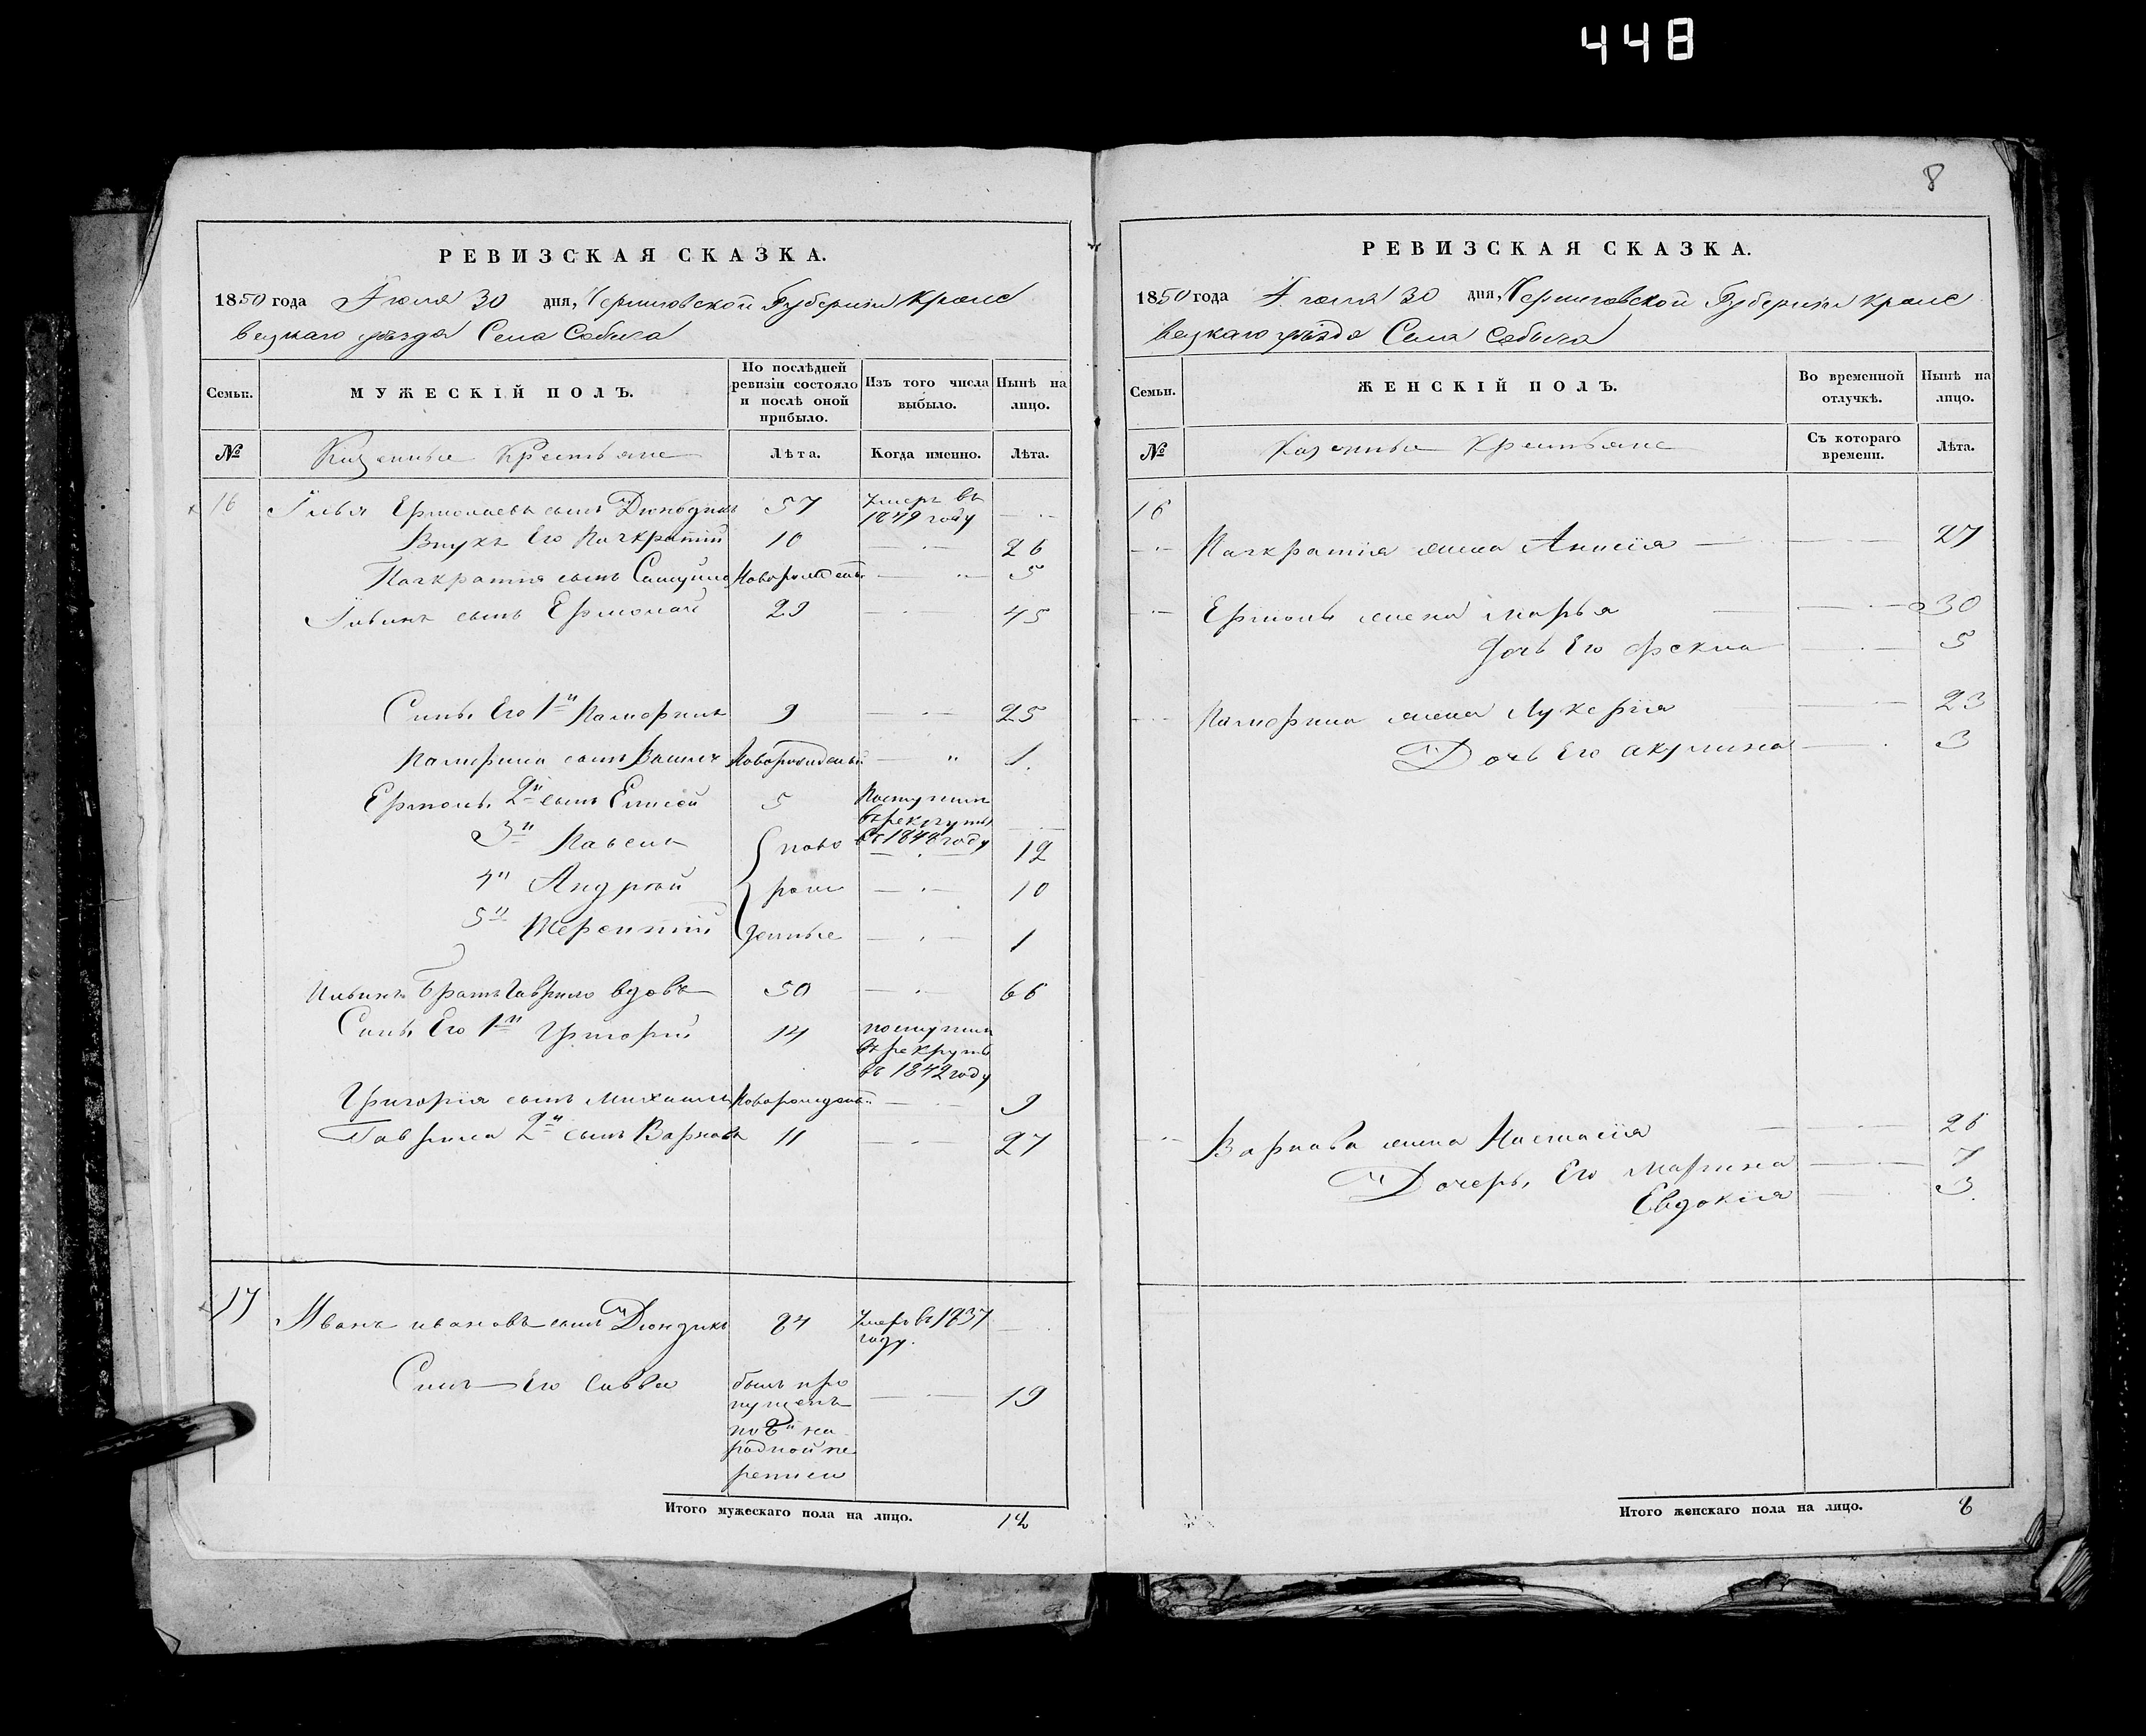 448
8
РЕВИЗСКАЯ СКАЗКА.
1850 года Іюля 30 дня, Черниговской Губерніи Кроле
вецкаго уѣзда Села Собыча
Семьи.
МУЖЕСКІЙ ПОЛЪ.
По послѣдней ревизіи состояло и послѣ оной прибыло.
Изъ того числа выбыло.
Нынѣ на лицо.
№
Казенные Крестьяне
Лѣта.
Когда именно.
Лѣта.
16 Илья Ермолаевъ сынъ 57 умеръ въ 1849 году
Внукъ Его Панкратій 10 26
Панкратія сынъ Самуйло Новорожденъ 5
Ильинъ сынъ Ермолай 29 45
Сынъ Его 1й 9 25
сынъ Новорожденый 1
Ермол. 2й сынъ Елисей 5 Поступил в рекруты въ 1848 году
3й Павелъ ново 12
4й Андрей рож 10
5й Терентій денные 1
Ильинъ Братъ Гаврило вдовъ 50 66
Сынъ Его 1й Григорій 14 поступил в рекруты въ 1842 году
Григорія сынъ Михаилъ Новорожден. 9
Гаврила 2й сынъ Варнава 11 27
17 Иванъ Ивановъ сынъ Дюндикъ 84 умеръ въ 1837 году.
Сынъ Его Савва былъ про пущенъ по 8й на родной пе реписи 19
Итого мужескаго пола на лицо. 12
РЕВИЗСКАЯ СКАЗКА.
1850 года Іюля 30 дня, Черниговской Губерніи Кроле
вецкаго уѣзда Села Собыча
Семьи.
ЖЕНСКІЙ ПОЛЪ.
Во временной отлучкѣ.
Нынѣ на лицо.
№
Казенные Крестьяне
Съ котораго времени.
Лѣта.
16
Панкратія жена Анисія 27
Ермол. жена Марья 30
дочь Его Фекла 5
жена Лукерія 23
Дочь Его Акулина 3
Варнава жена Настасія 26
Дочерь Его Марина 7
Евдокія 3
Итого женскаго пола на лицо. 8